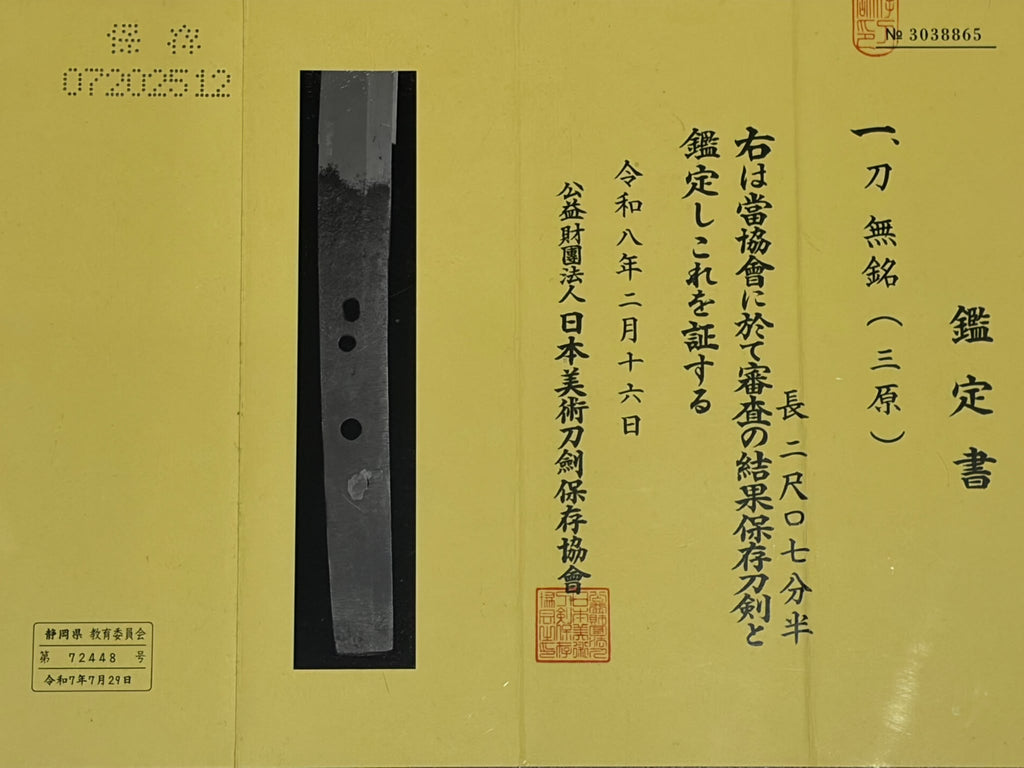 № 3038865
鑑定書
一、刀 無銘(三原)
長 二尺〇七分半
右は當協會に於て審査の結果保存刀剣と
鑑定しこれを証する
令和八年二月十六日
公益財團法人 日本美術刀劍保存協會
保存
07202512
静岡県 教育委員会
第 72448 号
令和7年7月29日